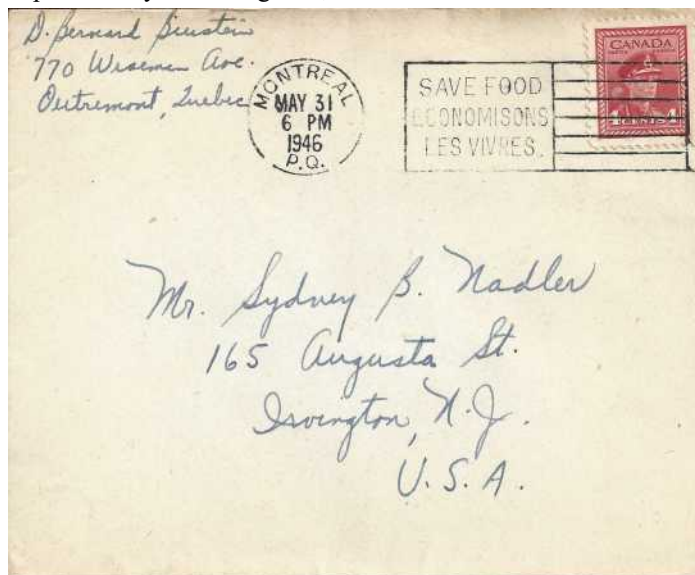 D. Bernard
770 Wiseman Ave.
Outremont, Quebec
MONTREAL
MAY 31
6 PM
1946
P.Q.
SAVE FOOD
ECONOMISONS
LES VIVRES.
CANADA
4 CENTS 4
Mr. Sydney B. Nadler
165 Augusta St.
Irvington, N.J.
U.S.A.